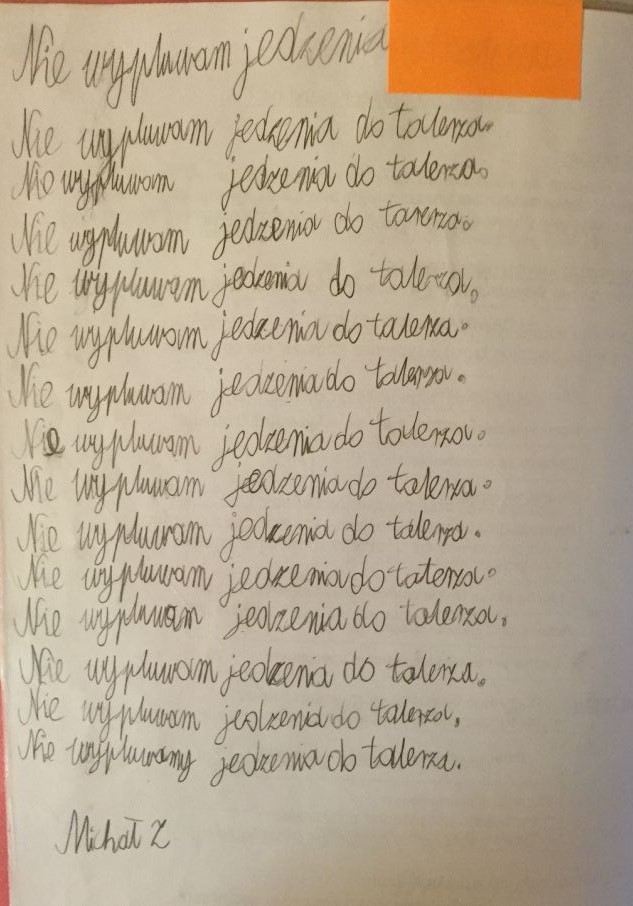 Nie wypluwam jedzenia
Nie wypluwam jedzenia do talerza.
Nie wypluwam jedzenia do talerza.
Nie wypluwam jedzenia do tarerza.
Nie wypluwam jedzenia do talerza,
Nie wypluwam jedzenia do talerza.
Nie wypluwam jedzenia do talerza.
Nie wypluwam jedzenia do talerza.
Nie wypluwam jedzenia do talerza.
Nie wypluwam jedzenia do talerza.
Nie wypluwam jedzenia do taterza.
Nie wypluwam jedzenia do talerza,
Nie wypluwam jedzenia do talerza.
Nie wypluwam jedzenia do talerza,
Nie wypluwamy jedzenia do talerza.
Michał Z